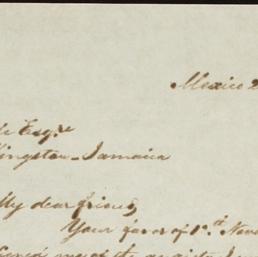 Mexico 2
Esqre
Kingston - Jamaica
My dear friend,
Your favor of 1st Nov